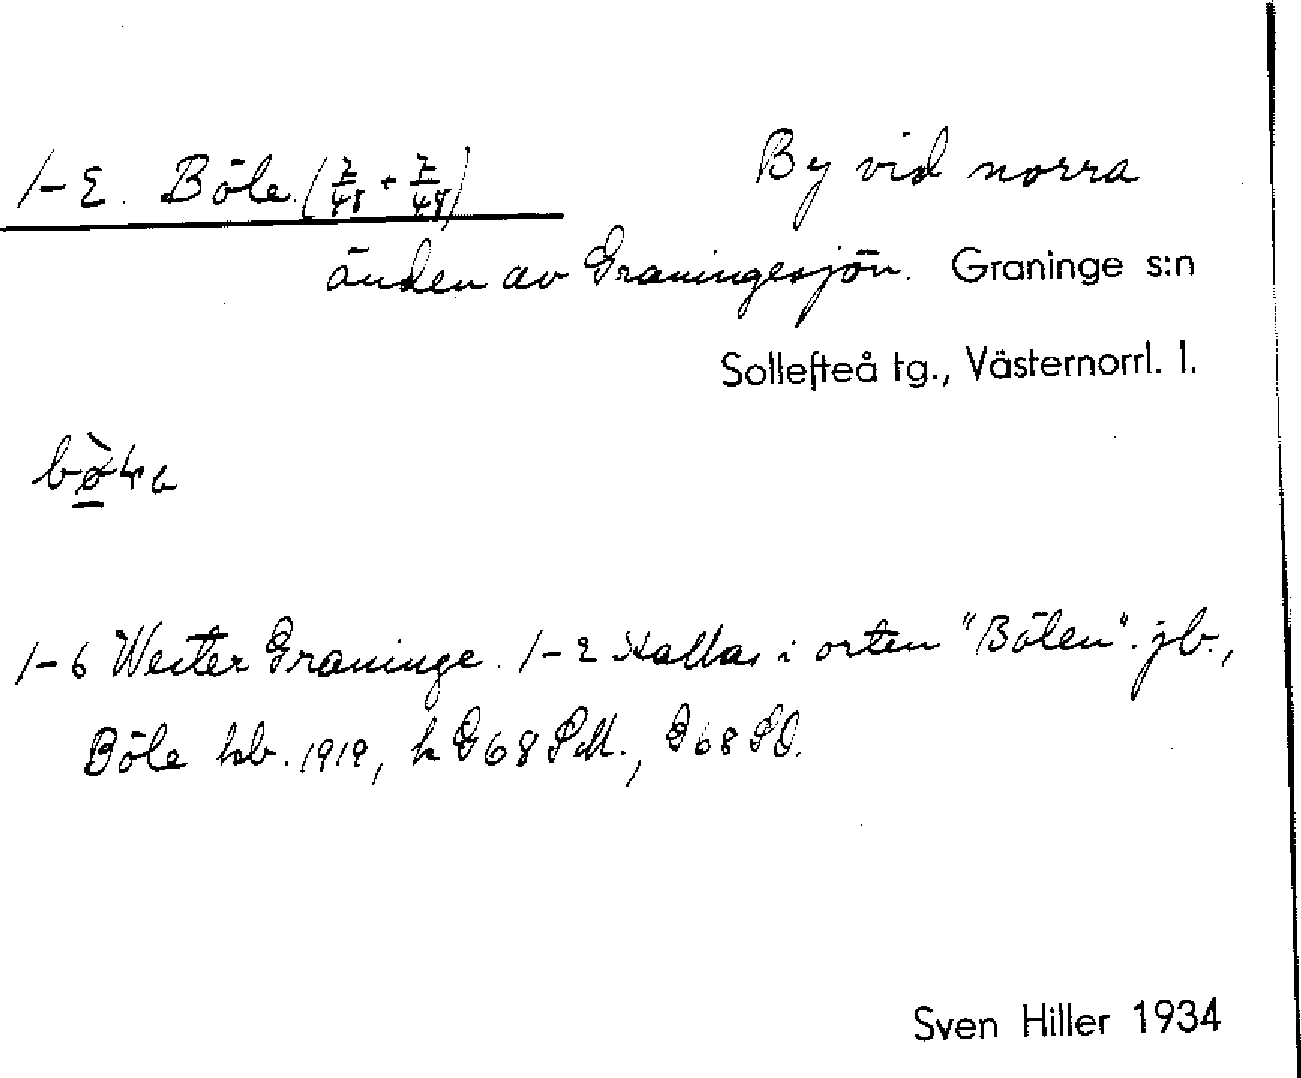 1-2. Böle. (7/48 + 7/48) By vid norra
änden av Graningesjön. Graninge s:n
Sollefteå tg., Västernorrl. l.
1-6 Wester Graninge. 1-2 kallas i orten "Bölen". jb.,
Böle hb. 1919, k G 68 SM., G 68 SO.
Sven Hiller 1934